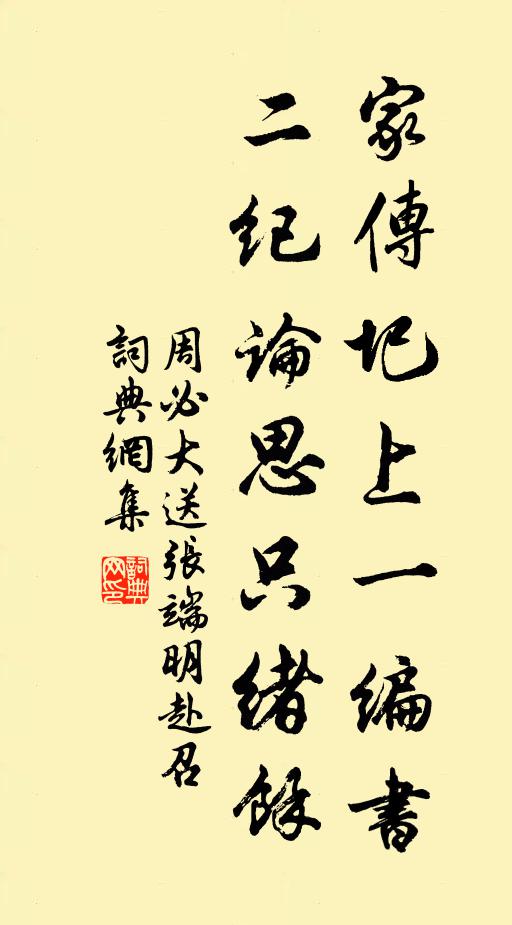 家傳圯上一編書
二紀論思只緒餘
周必大送張端明赴召
詞典網集
詞典網印